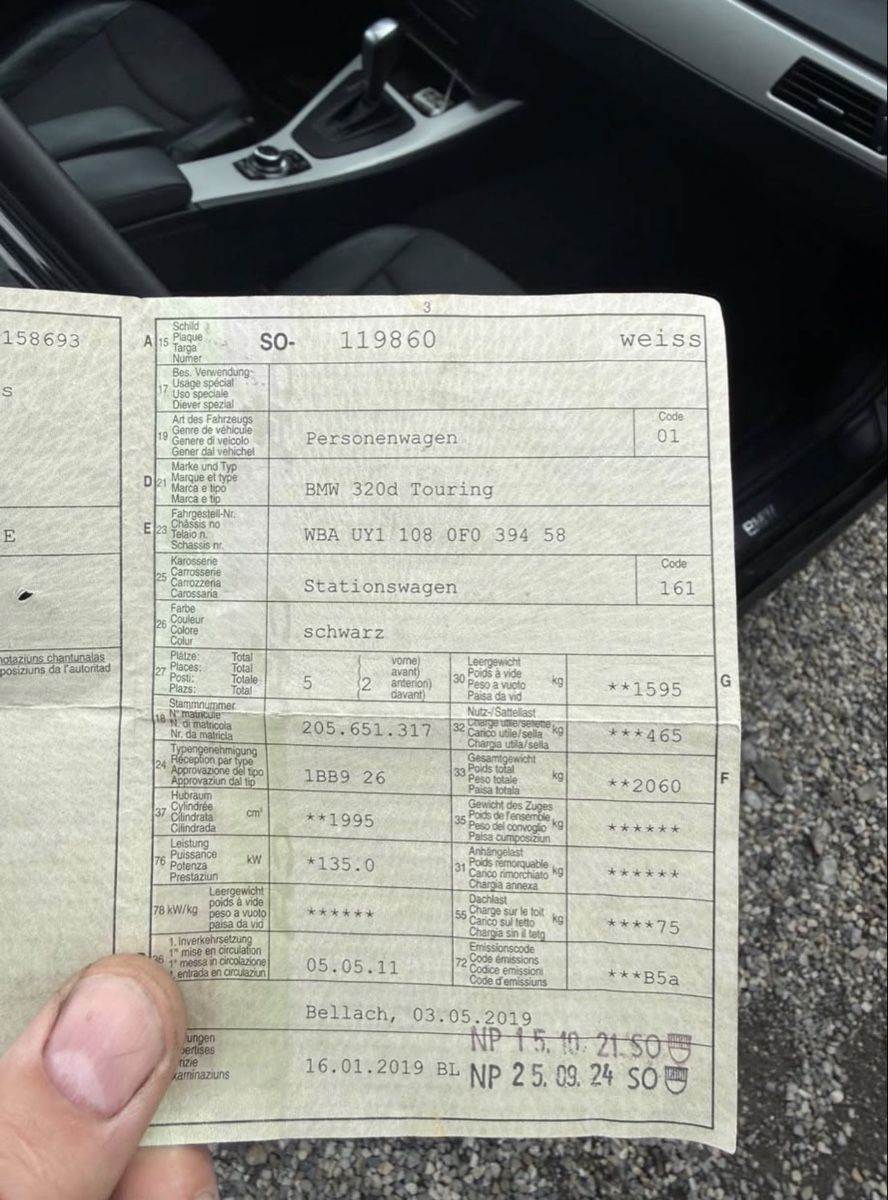 3
158693
s
E
notaziuns chantunalas
posiziuns da l'autoritad
A 15 Schild Plaque Targa Numer SO- 119860 weiss
17 Bes. Verwendung Usage spécial Uso speciale Diever spezial
19 Art des Fahrzeugs Genre de véhicule Genere di veicolo Gener dal vehichel Personenwagen Code 01
D 21 Marke und Typ Marque et type Marca e tipo Marca e tip BMW 320d Touring
E 23 Fahrgestell-Nr. Châssis no Telaio n. Schassis nr. WBA UY1 108 0F0 394 58
25 Karosserie Carrosserie Carrozzeria Carossaria Stationswagen Code 161
26 Farbe Couleur Colore Colur schwarz
27 Plätze: Total Places: Total Posti: Totale Plazs: Total 5 (2 vorne) avant) anteriori) davant) 30 Leergewicht Poids à vide Peso a vuoto Paisa da vid kg **1595 G
18 Stammnummer N° matricule N. di matricola Nr. da matricla 205.651.317 32 Nutz-/Sattellast Charge utile/sellette Carico utile/sella Chargia utila/sella kg ***465
24 Typengenehmigung Réception par type Approvazione del tipo Approvaziun dal tip 1BB9 26 33 Gesamtgewicht Poids total Peso totale Paisa totala kg **2060 F
37 Hubraum Cylindrée Cilindrata Cilindrada cm³ **1995 35 Gewicht des Zuges Poids de l'ensemble Peso del convoglio Paisa cumposiziun kg ******
76 Leistung Puissance Potenza Prestaziun kW *135.0 31 Anhängelast Poids remorquable Carico rimorchiato Chargia annexa kg ******
78 kW/kg Leergewicht poids à vide peso a vuoto paisa da vid ****** 55 Dachlast Charge sur le toit Carico sul tetto Chargia sin il tetg kg ****75
36 1. Inverkehrsetzung 1re mise en circulation 1a messa in circolazione 1. entrada en circulaziun 05.05.11 72 Emissionscode Code émissions Codice emissioni Code d'emissiuns ***B5a
Bellach, 03.05.2019
NP 15.10.21.SO
ungen pertises rizie xaminaziuns 16.01.2019 BL NP 25.09.24 SO
BMW